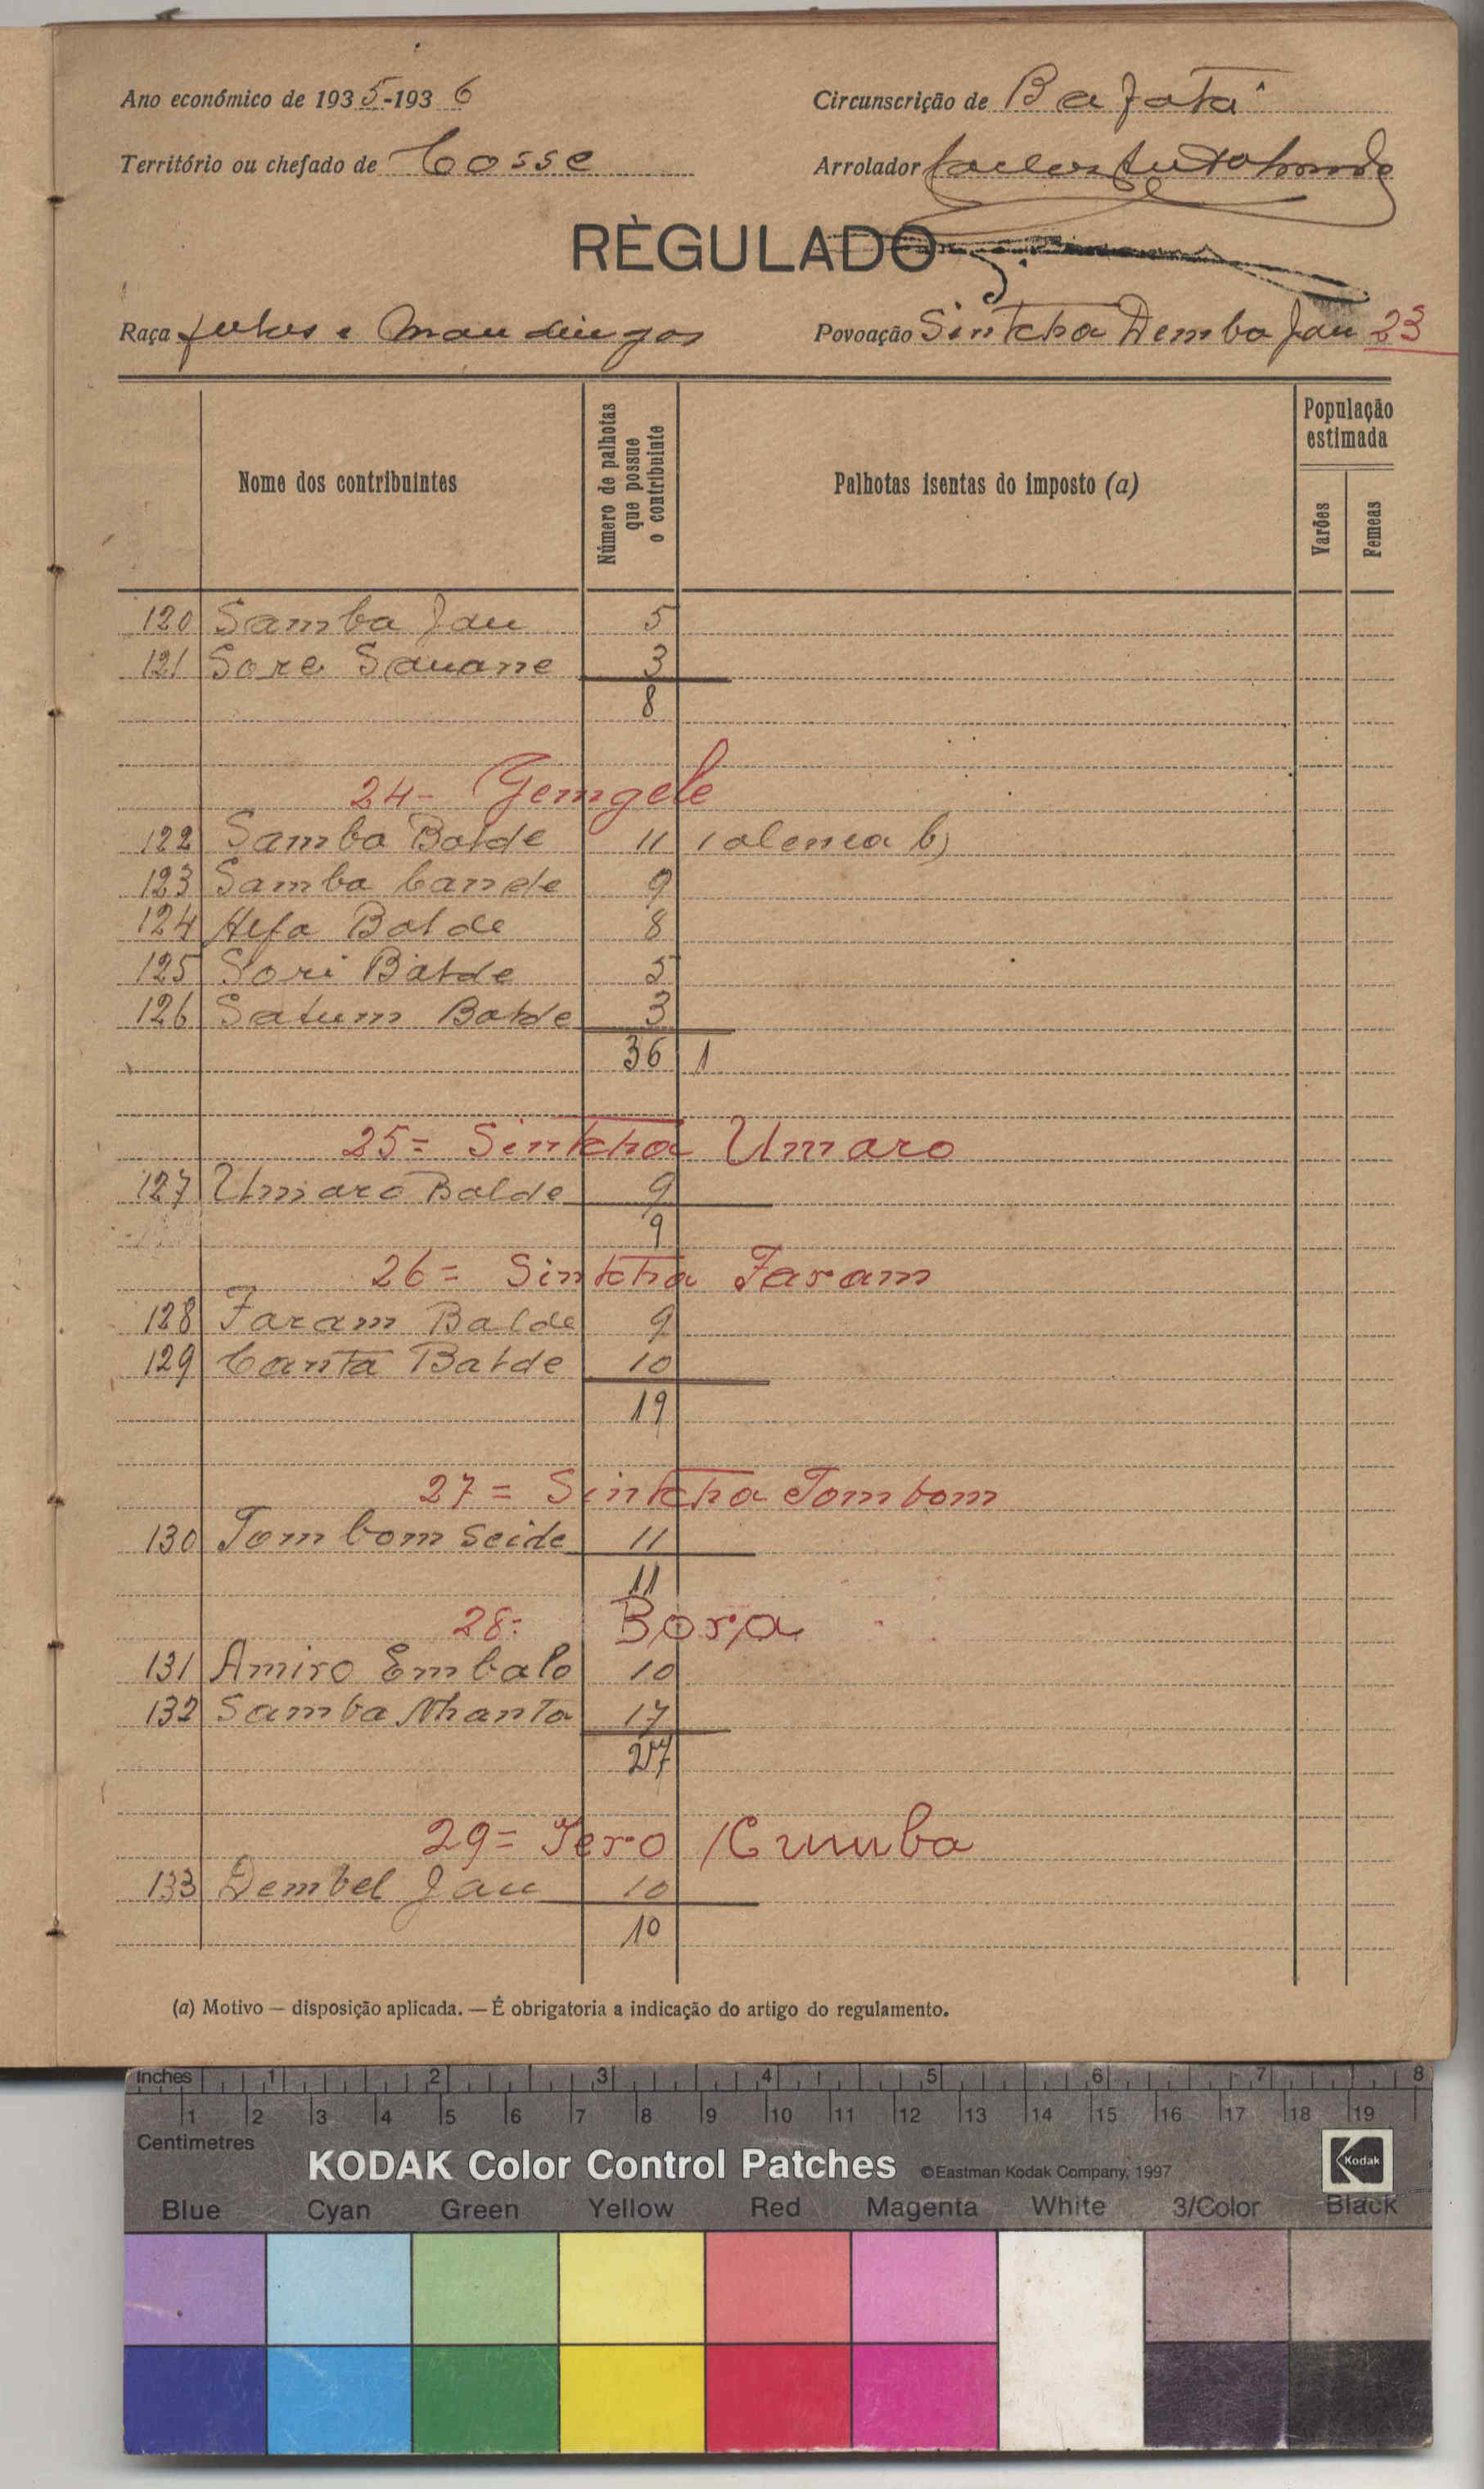 Ano económico de 1935-1936
Circunscrição de Bafatá
Território ou chefado de Cosse
Arrolador
REGULADO
Raça fulas e Mandingas
Povoação Sintcha Demba Jau 23
Nome dos contribuintes
Número de palhotas que possue o contribuinte
Palhotas isentas do imposto (a)
População estimada
Varões
Femeas
120 Samba Jau 5
121 Sore Sauane 3
8
24- Gemgele
122 Samba Balde 11 1 alenea b)
123 Samba Cande 9
124 Alfa Balde 8
125 Sori Balde 5
126 Satum Balde 3
36 1
25= Sintcha Umaro
127 Umaro Balde 9
9
26= Sintcha Faram
128 Faram Balde 9
129 Canta Balde 10
19
27= Sintcha Tombom
130 Tombom Seide 11
11
28= Bora
131 Amiro Embalo 10
132 Samba Nhanta 17
27
29= Iero Cumba
133 Dembel Jau 10
10
(a) Motivo — disposição aplicada. — É obrigatoria a indicação do artigo do regulamento.
Inches 1 2 3 4 5 6 7 8
1 2 3 4 5 6 7 8 9 10 11 12 13 14 15 16 17 18 19
Centimetres
KODAK Color Control Patches ©Eastman Kodak Company, 1997 Kodak
Blue Cyan Green Yellow Red Magenta White 3/Color Black